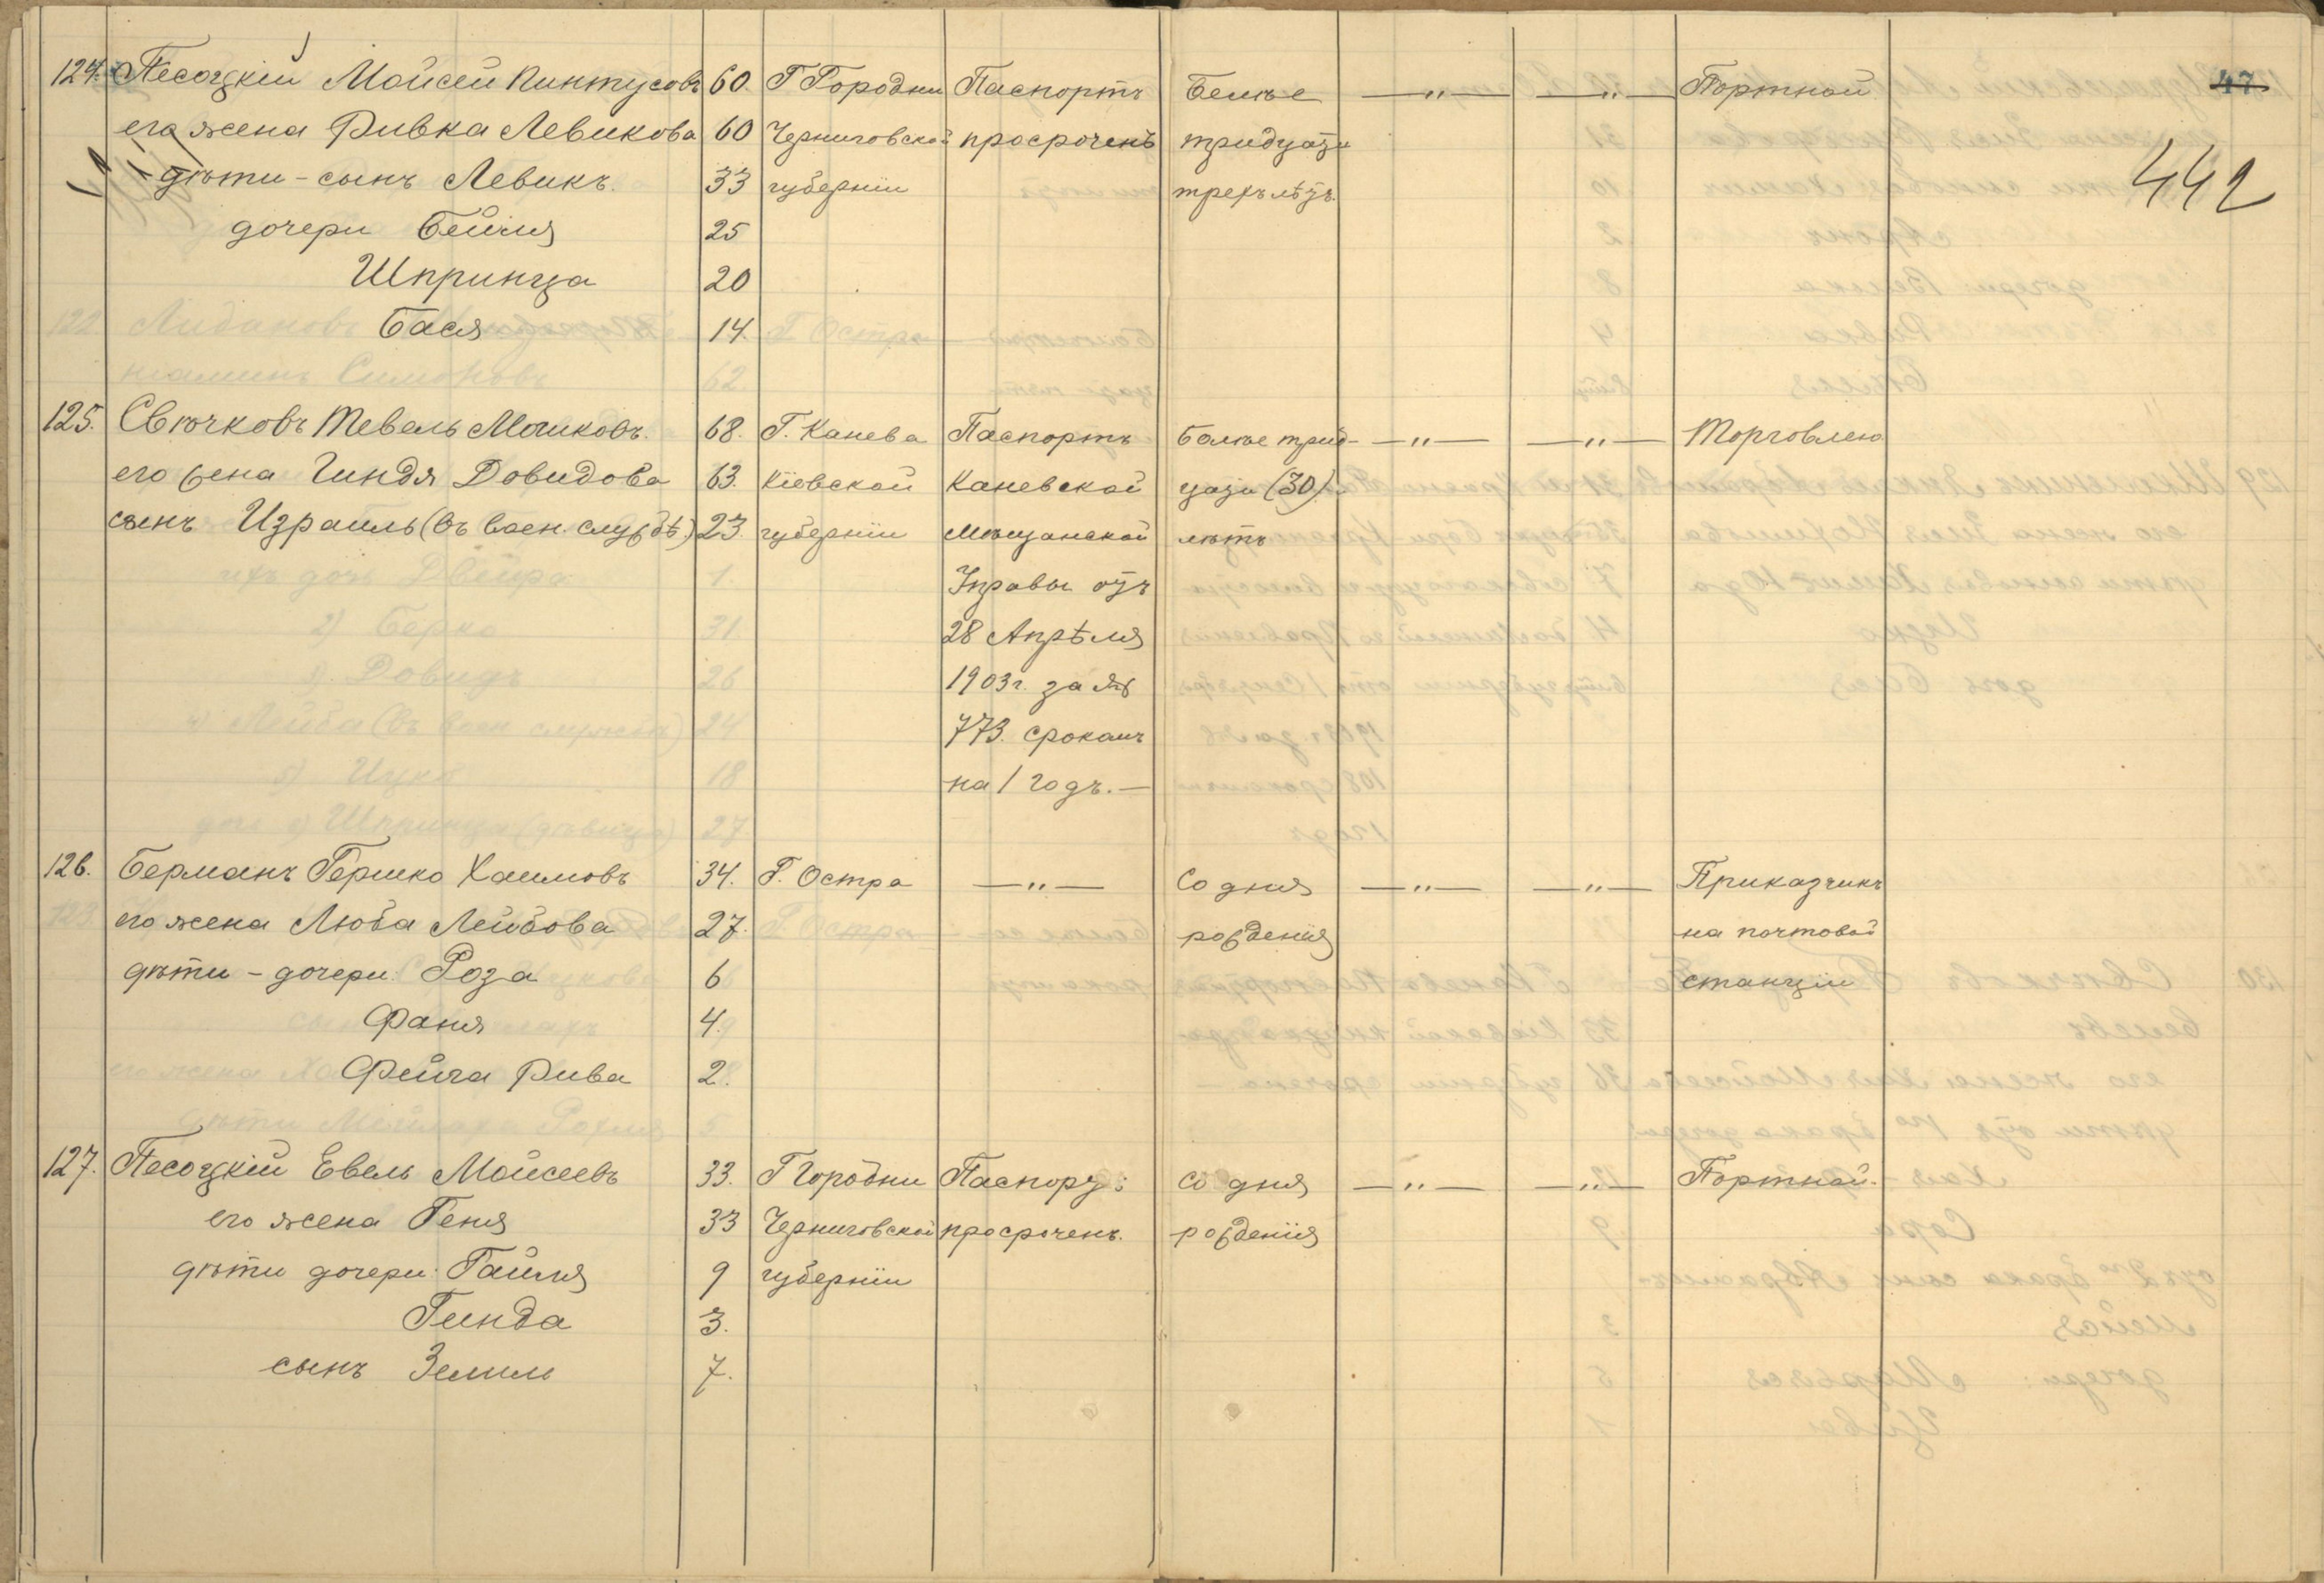 124. Песоцкій Мойсей Пинтусовъ 60. Г Городни Паспортъ Более —„— —„— Портной 47
его жена Ривка Левикова 60 Черниговской просроченъ тридцати
дѣти - сынъ Левикъ. 33 губерніи трехъ лѣтъ. 442
дочери Бейля 25
Шпринца 20
Бася 14.
125. Свѣчковъ Тевель Мошковъ. 68. Г. Канева Паспортъ более трид- —„— —„— Торговлею
его жена Гиндя Довидова 63. Кіевской Каневской цати (30)
сынъ Израиль (въ воен. службѣ) 23. губерніи Мѣщанской лѣтъ
Управы отъ
28 Апрѣля
1903 г. за №
773. срокомъ
на 1 годъ. —
126. Берманъ Гершко Хаимовъ 34. Г. Остра —„— Со дня —„— —„— Приказчикъ
его жена Люба Лейбова 27. рожденія на почтовой
дѣти - дочери: Роза 6 станціи
Фаня 4.
Фейга Рива 2.
127. Песоцкій Евель Мойсеевъ 33. Г Городни Паспорт: Со дня —„— —„— Портной.
его жена Геня 33 Черниговской просроченъ. рожденія
дѣти дочери: Гайля 9 губерніи
Гинда 3.
сынъ 7.